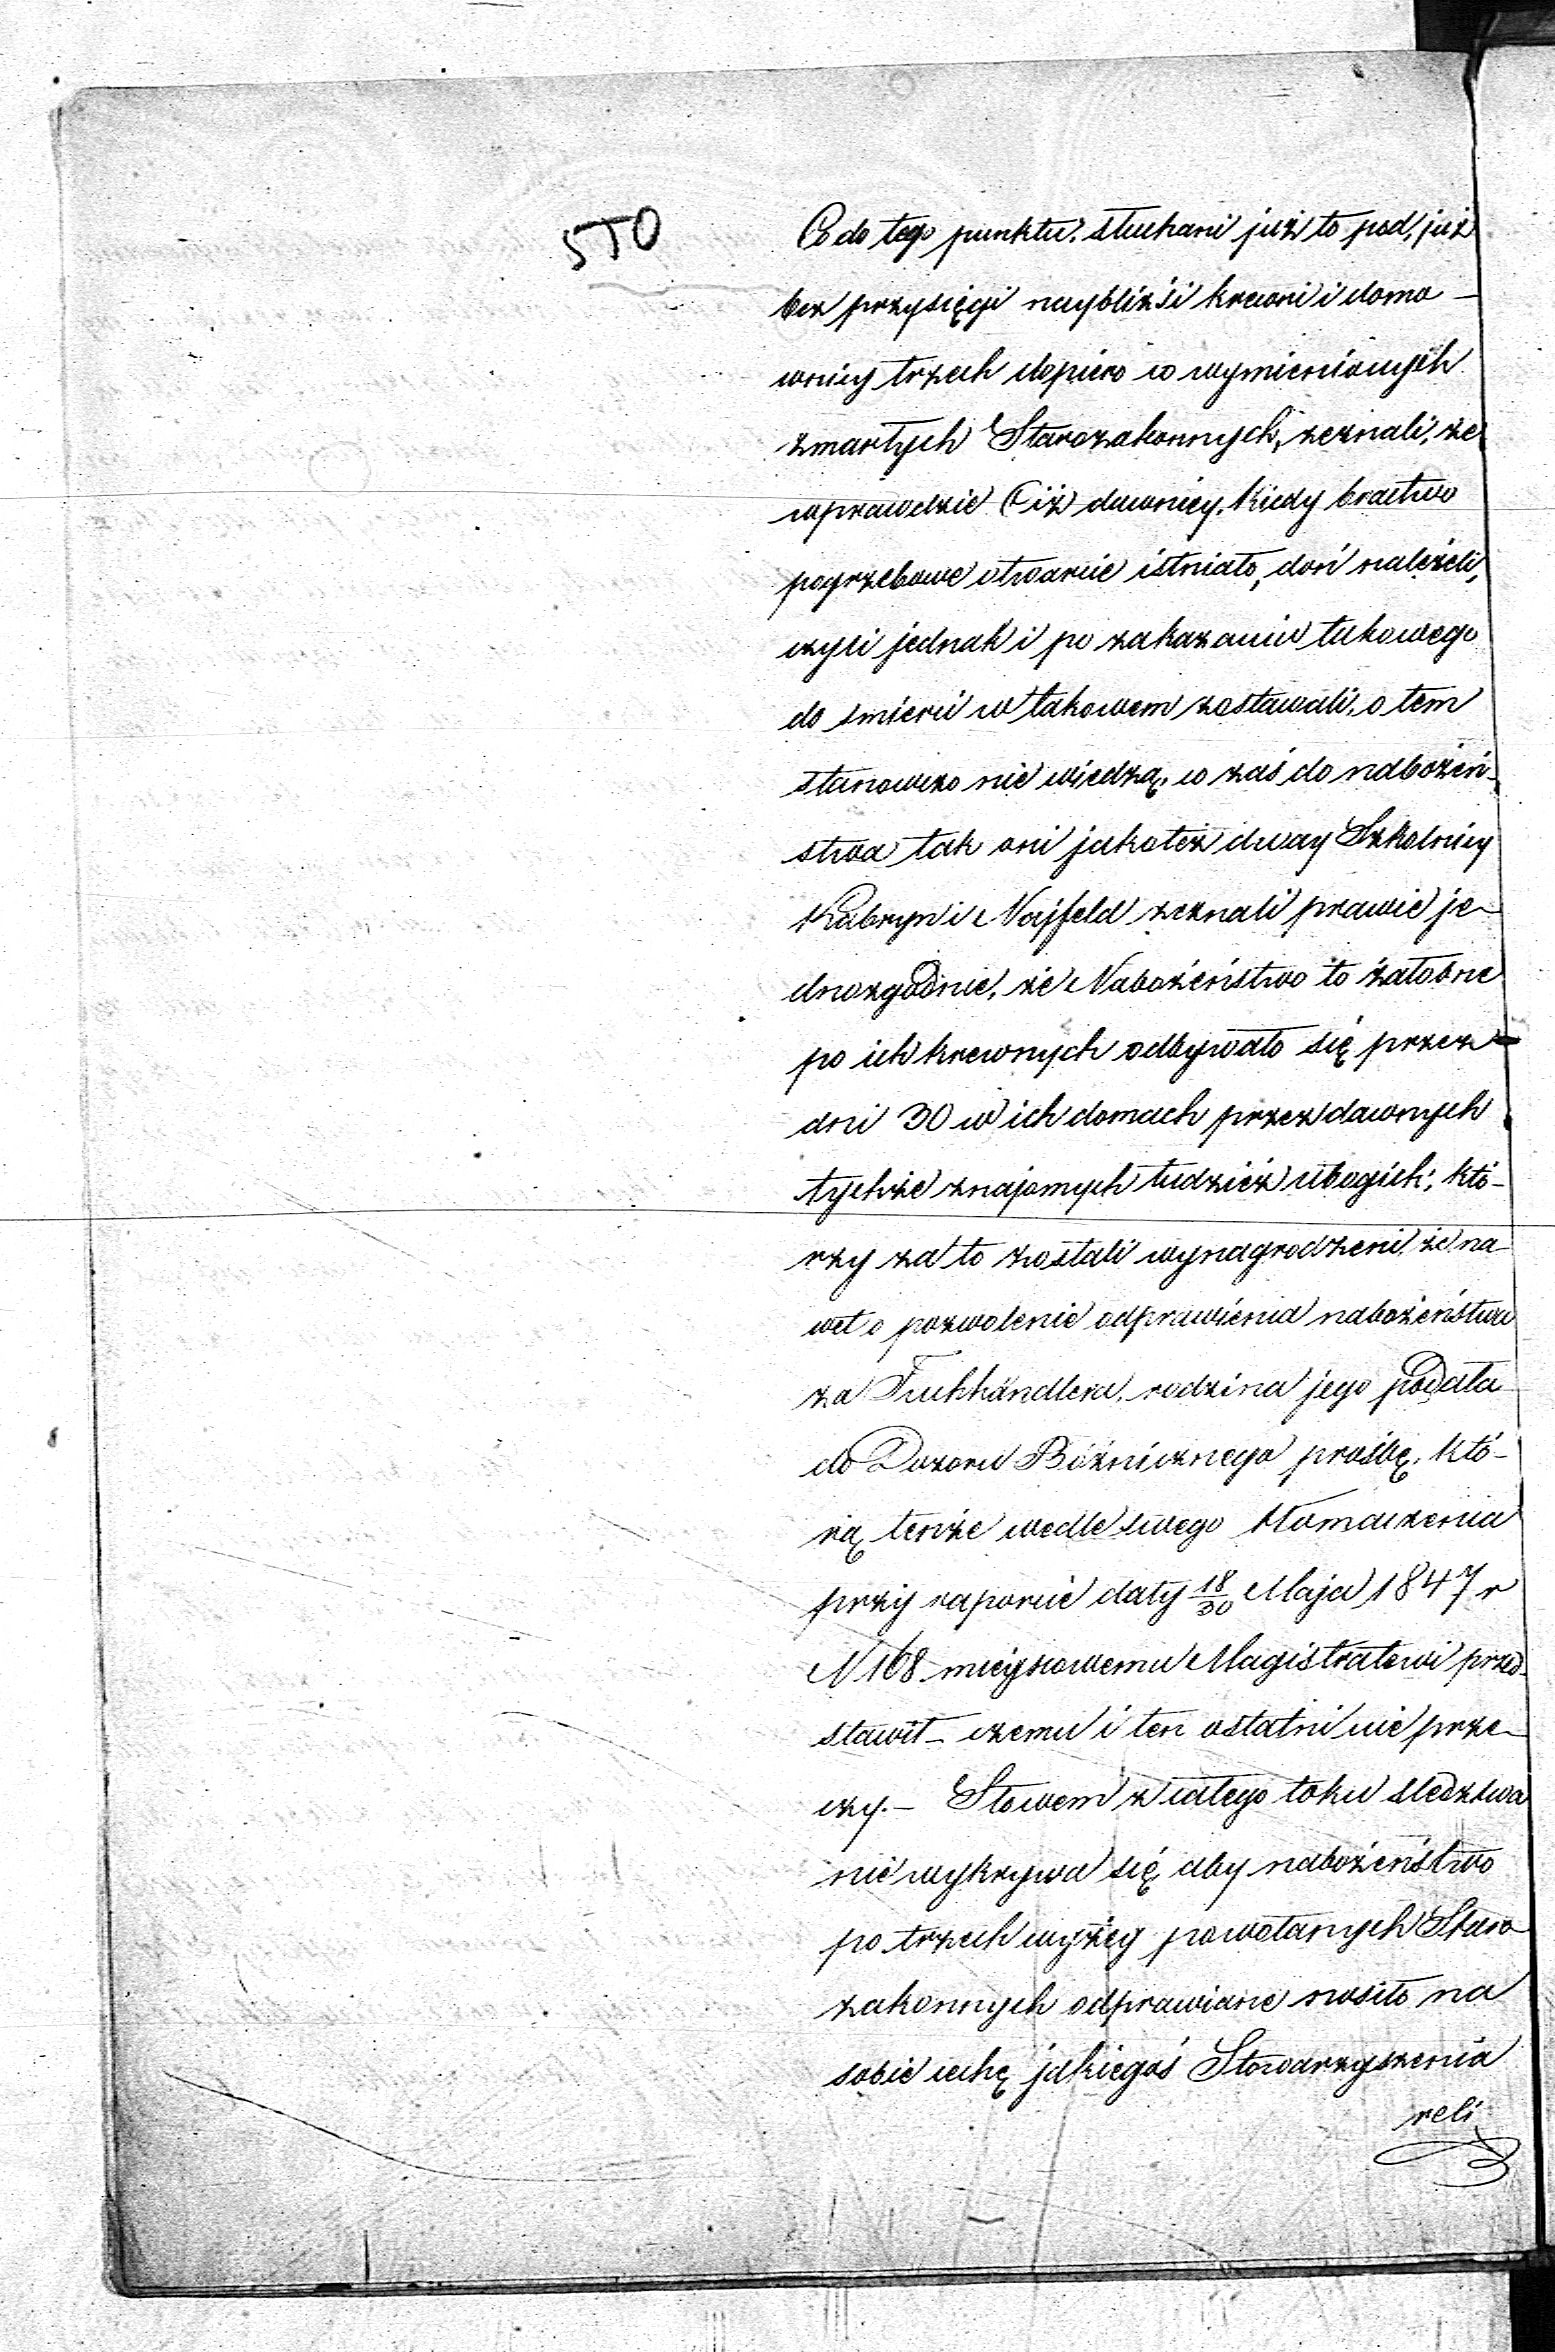 570
Co do tego punktu, słuchani już to pod, już
bez przysięgi nayblizśi krewni i domo-
wnicy trzech dopiero co wymienionych
zmarłych Starozakonnych, zeznali, że
wprawdzie Ciż dawniey, kiedy bractwo
pogrzebowe otwarcie istniało, doń należeli,
czyli jednak i po zakazaniu takowego
do śmierci w takowem zostawali, o tem
stanowczo nie wiedzą, co zaś do nabożeń-
stwa tak oni jakoteż dway Szkolnicy
Kabryn i Najfeld zeznali prawie je-
dnozgodnie, że Nabożeństwo to żałobne
po ich krewnych odbywało się przez
dni 30 w ich domach przez dawnych
tychże znajomych tudzież ubogich, któ-
rzy za to zostali wynagrodzeni, że na-
wet o pozwolenie odprawienia nabożeństwa
za Tuchhändlera, rodzina jego podała
do Dozoru Bóżnicznego prośbę, któ-
rą tenże wedle swego tłomaczenia
przy raporcie daty 18/30 Maja 1847 r
N 168 mieyscowemu Magistratowi przed-
stawił – czemu i ten ostatni nie prze-
czy. – Słowem z całego toku śledztwa
nie wykrywa się aby nabożeństwo
po trzech wyżey powołanych Staro
zakonnych odprawiane nosiło na
sobie cechę jakiegoś Stowarzyszenia
reli